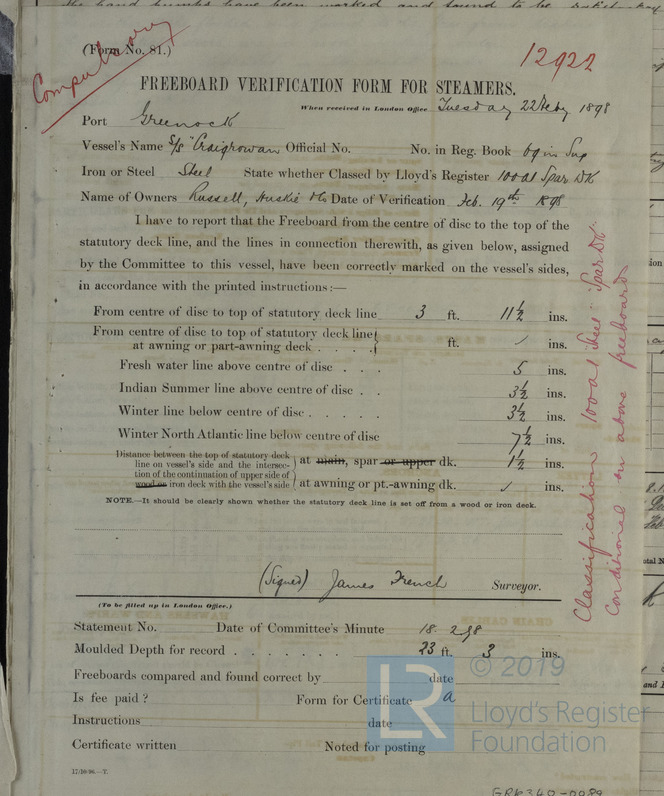 the hand pumps have been marked and found to be
(Form No. 81.)
Compulsory
12922
FREEBOARD VERIFICATION FORM FOR STEAMERS.
When received in London Office Tuesday 22 Feby 1898
Port Greenock
Vessel's Name S/S "Craigrowan Official No. No. in Reg. Book 69 in Sup
Iron or Steel Steel State whether Classed by Lloyd's Register 100A1 Spar Dk
Name of Owners Russell, Huskie & Co Date of Verification Feb. 19th 1898
I have to report that the Freeboard from the centre of disc to the top of the
statutory deck line, and the lines in connection therewith, as given below, assigned
by the Committee to this vessel, have been correctly marked on the vessel's sides,
in accordance with the printed instructions:—
From centre of disc to top of statutory deck line 3 ft. 11½ ins.
From centre of disc to top of statutory deck line
at awning or part-awning deck . . . . ft. / ins.
Fresh water line above centre of disc . . . 5 ins.
Indian Summer line above centre of disc . . 3½ ins.
Winter line below centre of disc . . . . . 3½ ins.
Winter North Atlantic line below centre of disc 7½ ins.
Distance between the top of statutory deck
line on vessel's side and the intersec- at main, spar or upper dk. 1½ ins.
tion of the continuation of upper side of
wood or iron deck with the vessel's side at awning or pt.-awning dk. / ins.
NOTE.—It should be clearly shown whether the statutory deck line is set off from a wood or iron deck.
Classification 100A1 "Steel" "Spar Dk"
Conditional on above freeboard
(Signed) James French Surveyor.
(To be filled up in London Office.)
Statement No. Date of Committee's Minute 18. 2. 98
Moulded Depth for record . . . . . . . 23 ft. 3 ins.
Freeboards compared and found correct by date
Is fee paid ? Form for Certificate a
Instructions date
Certificate written Noted for posting
17/10/96.—T.
© 2019
LR
Lloyd's Register
Foundation
GRK340-0089